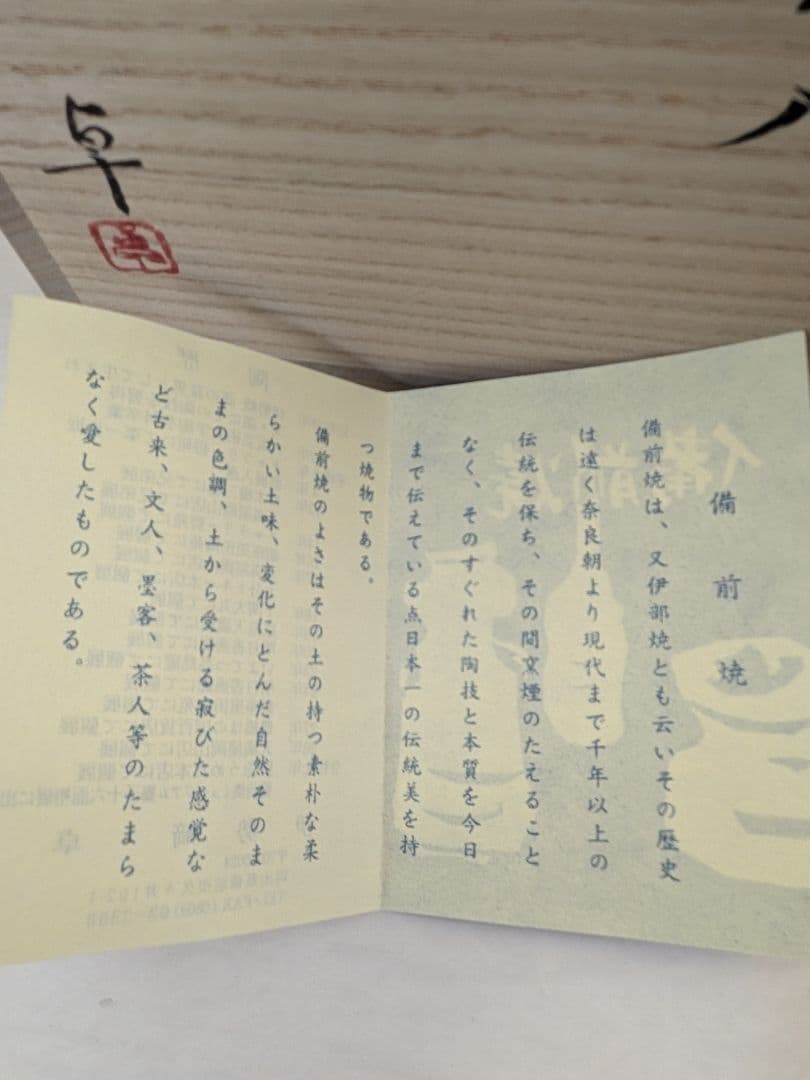 卓
備前焼
備前焼は、又伊部焼とも云いその歴史
は遠く奈良朝より現代まで千年以上の
伝統を保ち、その間文煙のたえること
なく、そのすぐれた陶技と本質を今日
まで伝えている点日本一の伝統美を持
つ焼物である。
備前焼のよさはその土の持つ素朴な柔
らかい土味、変化にとんだ自然そのま
まの色調、土から受ける寂びた感覚な
ど古来、文人、墨客、茶人等のたまら
なく愛したものである。